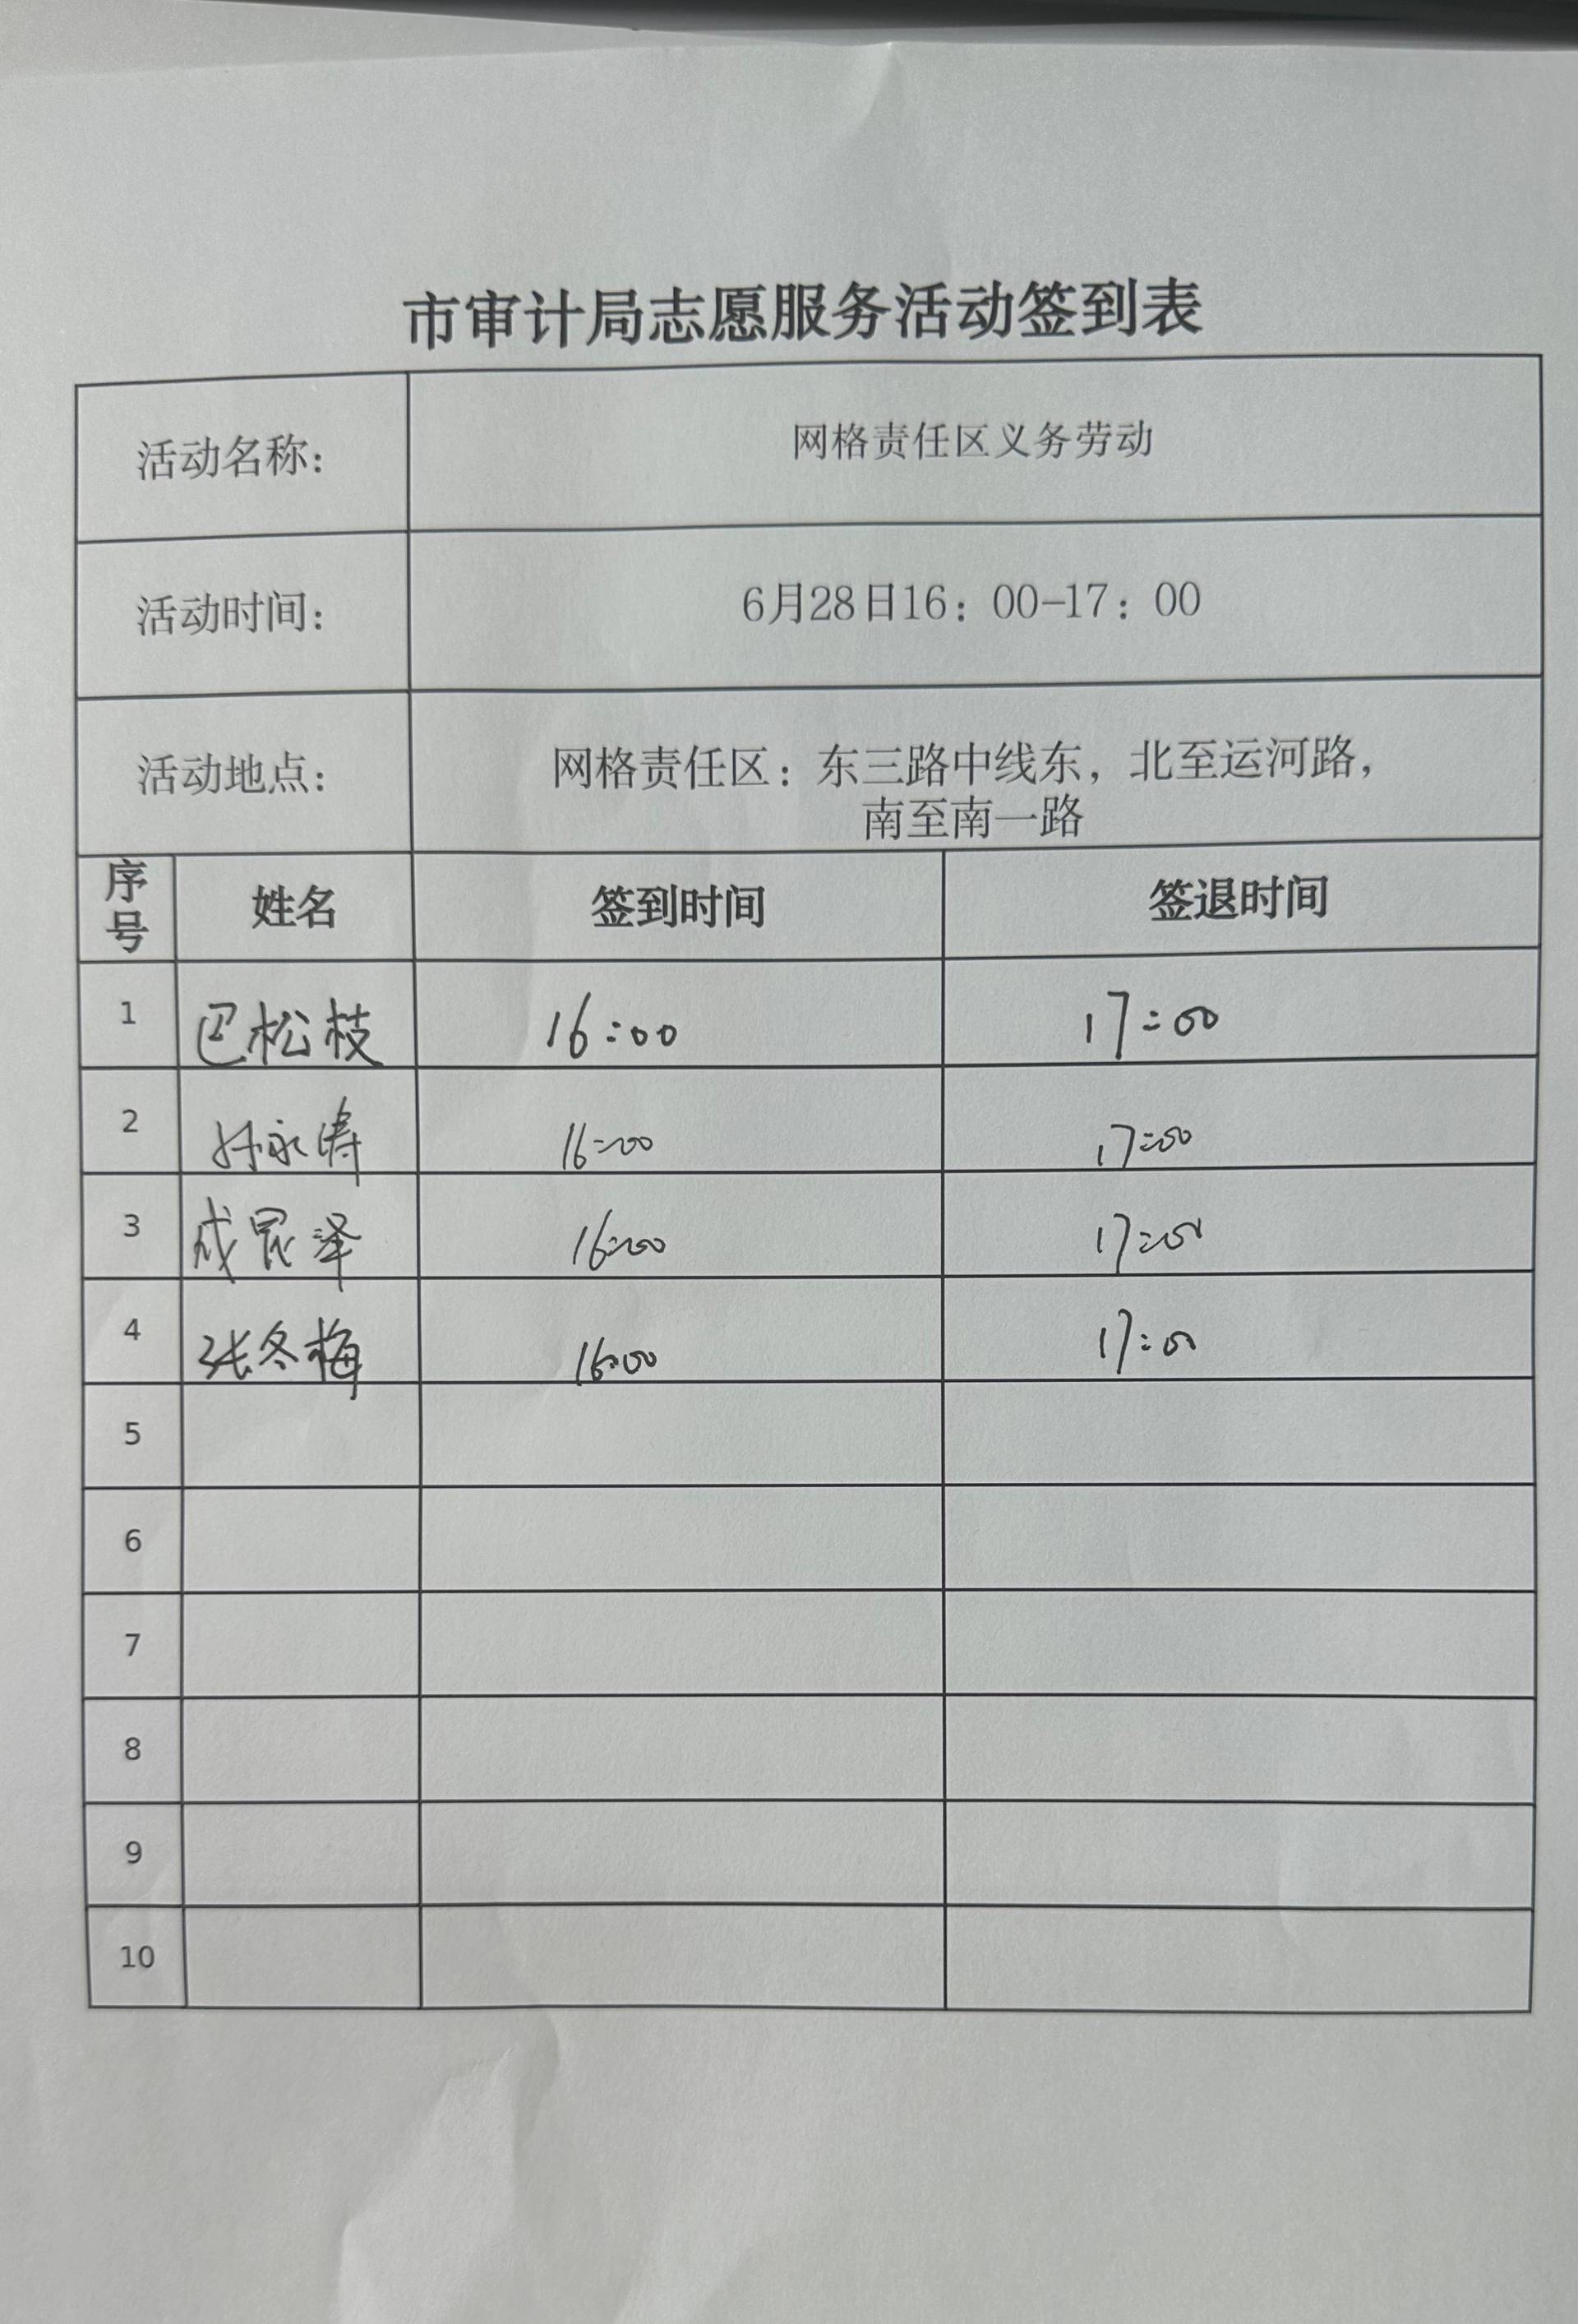 市审计局志愿服务活动签到表
活动名称： 网格责任区义务劳动
活动时间： 6月28日16：00-17：00
活动地点： 网格责任区：东三路中线东，北至运河路，
南至南一路
序号 姓名 签到时间 签退时间
1 巴松枝 16:00 17:00
2 孙永涛 16:00 17:00
3 成 泽 16:00 17:00
4 张冬梅 16:00 17:00
5
6
7
8
9
10